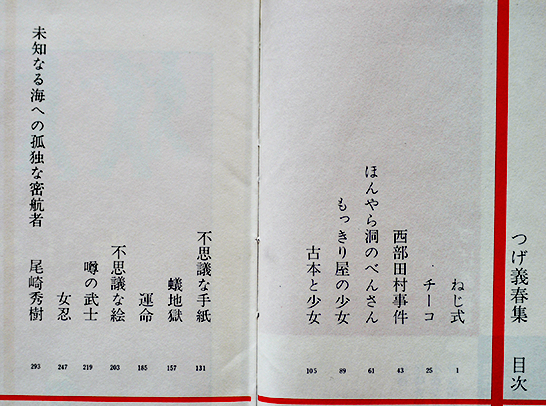 つげ義春集 目次
ねじ式 1
チーコ 25
西部田村事件 43
ほんやら洞のべんさん 61
もっきり屋の少女 89
古本と少女 105
不思議な手紙 131
蟻地獄 157
運命 185
不思議な絵 203
噂の武士 219
女忍 247
未知なる海への孤独な密航者 尾崎秀樹 293